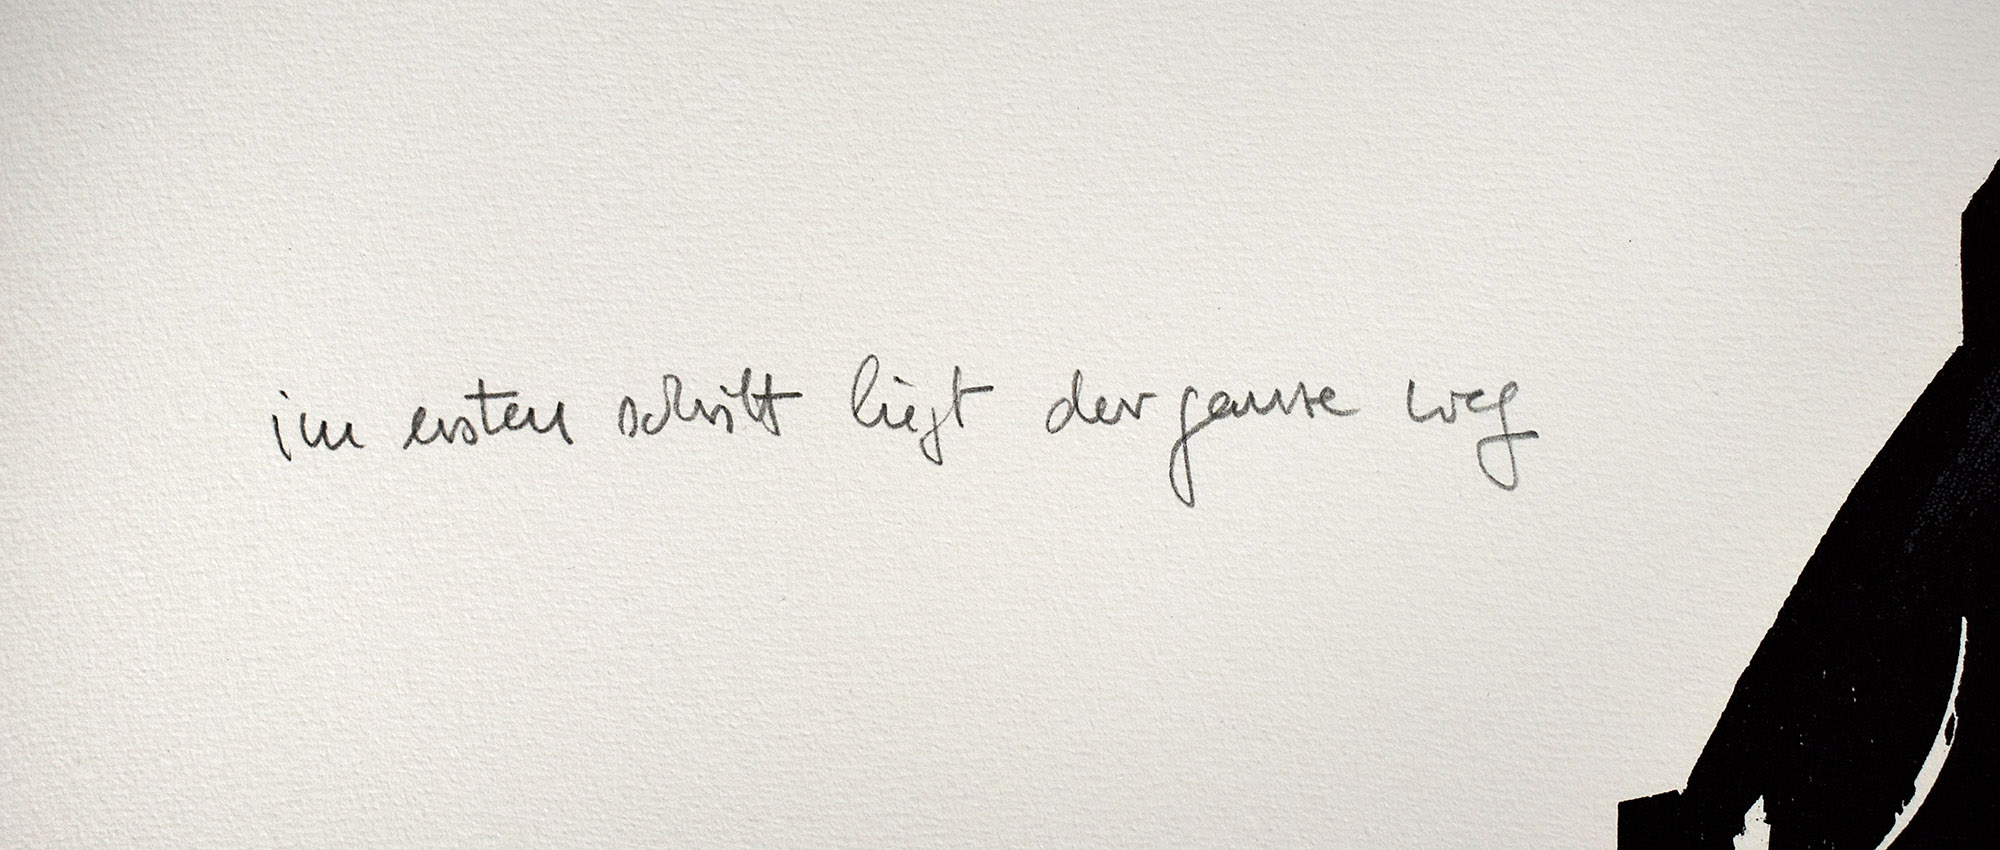 im ersten schritt liegt der ganze weg